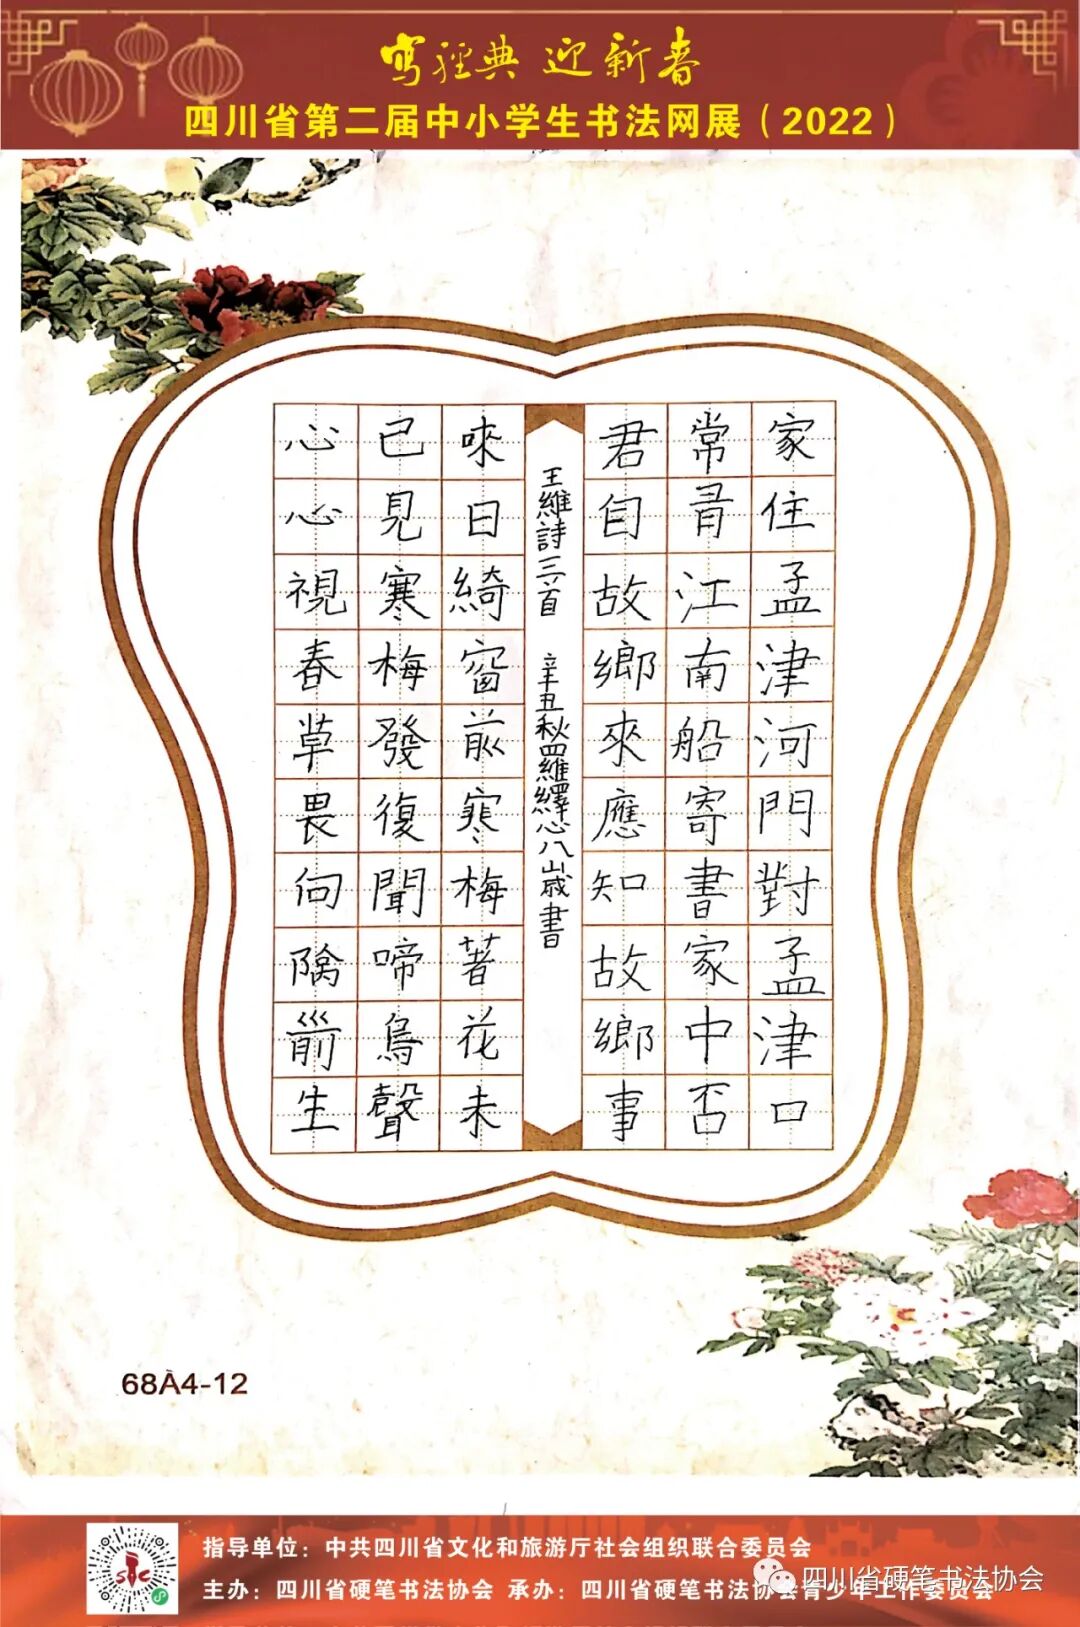 寫經典 迎新春
四川省第二届中小学生书法网展（2022）
家住孟津河門對孟津口
常有江南船寄書家中否
君自故鄉來應知故鄉事
王維詩三首 辛丑秋羅繹心八歲書
來日綺窗前寒梅著花未
已見寒梅發復聞啼鳥聲
心心視春草畏向階前生
68A4-12
指导单位：中共四川省文化和旅游厅社会组织联合委员会
主办：四川省硬笔书法协会 承办：四川省硬笔书法协会青少年工作委员会
四川省硬笔书法协会